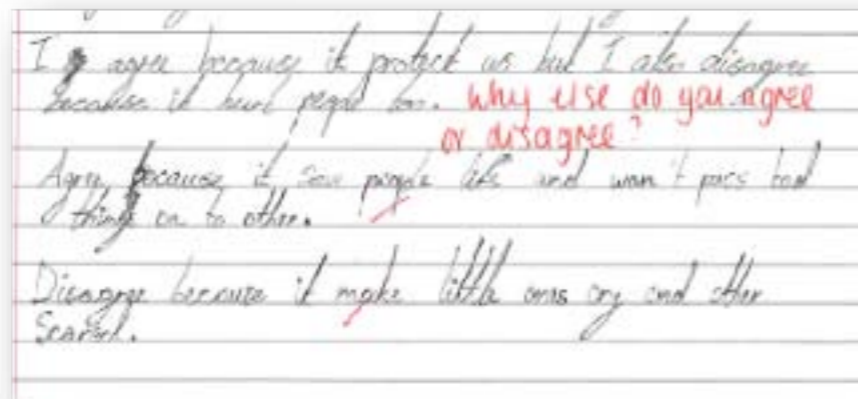 I agree because it protect us but I also disagree
because it hurt people Why else do you agree
or disagree?
Agree because it save people life and won't pass bad
things on to other.
Disagree because it make little ones cry and other
scared.